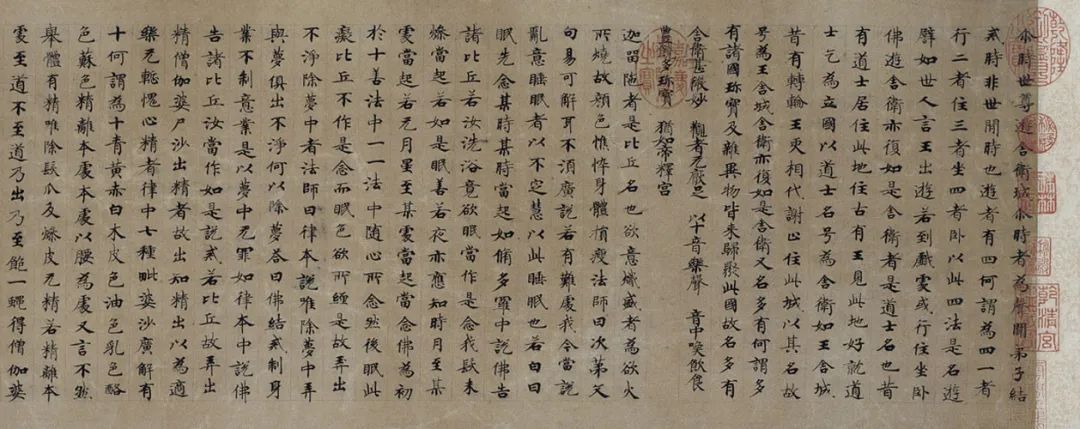 尒時世尊遊舍衛城尒時者為聲聞弟子結
戒時非世間時也遊者有四何謂為四一者
行二者住三者坐四者卧以此四法是名遊
譬如世人言王出遊若到戲處或行住坐卧
佛遊舍衛亦復如是舍衛者是道士名也昔
有道士居住此地住古有王見此地好就道
士乞為立國以道士名号為舍衛如王舍城
昔有轉輪王更相代謝止住此城以其名故
号為王舍城舍衛亦復如是舍衛又名多有何謂多
有諸國珎寶及雜異物皆来歸聚此國故名多有
舍衛甚微妙 觀者无厭足 以十音樂聲 音中喚飲食
豊饒多珎寶 猶如帝釋宮
迦留陁者是比丘名也欲意熾盛者為欲火
所燒故顏色憔悴身體損瘦法師曰次第文
句易可解耳不須廣說若有難處我今當說
亂意睡眠者以不定慧以此睡眠也若白日
眠先念某時某時當起如脩多羅中說佛告
諸比丘若汝洗浴竟欲眠當作是念我髮未
燥當起若如是眠善若夜亦應知時月至某
處當起若无月星至某處當起當念佛為初
於十善法中一一法中随心所念然後眠此
癡比丘不作是念而眠色欲所纏是故弄出
不淨除夢中者法師曰律本說唯除夢中弄
與夢俱出不淨何以除夢荅曰佛結戒制身
業不制意業是以夢中无罪如律本中說佛
告諸比丘汝當作如是說戒若比丘故弄出
精僧伽婆尸沙出精者故出知精出以為適
樂无慙愧心精者律中七種毗婆沙廣解有
十何謂為十青黃赤白木皮色油色乳色酪
色蘇色精離本處本處以腰為處又言不然
舉體有精唯除髮爪及燥皮无精若精離本
處至道不至道乃出乃至飽一蠅得僧伽婆
乾清宮